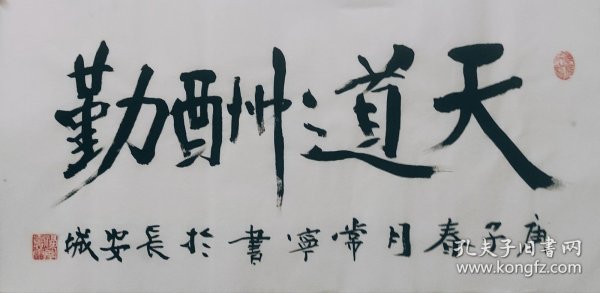 天道酬勤
庚子春月常寧書於長安城
孔夫子旧书网
www.kongfz.com